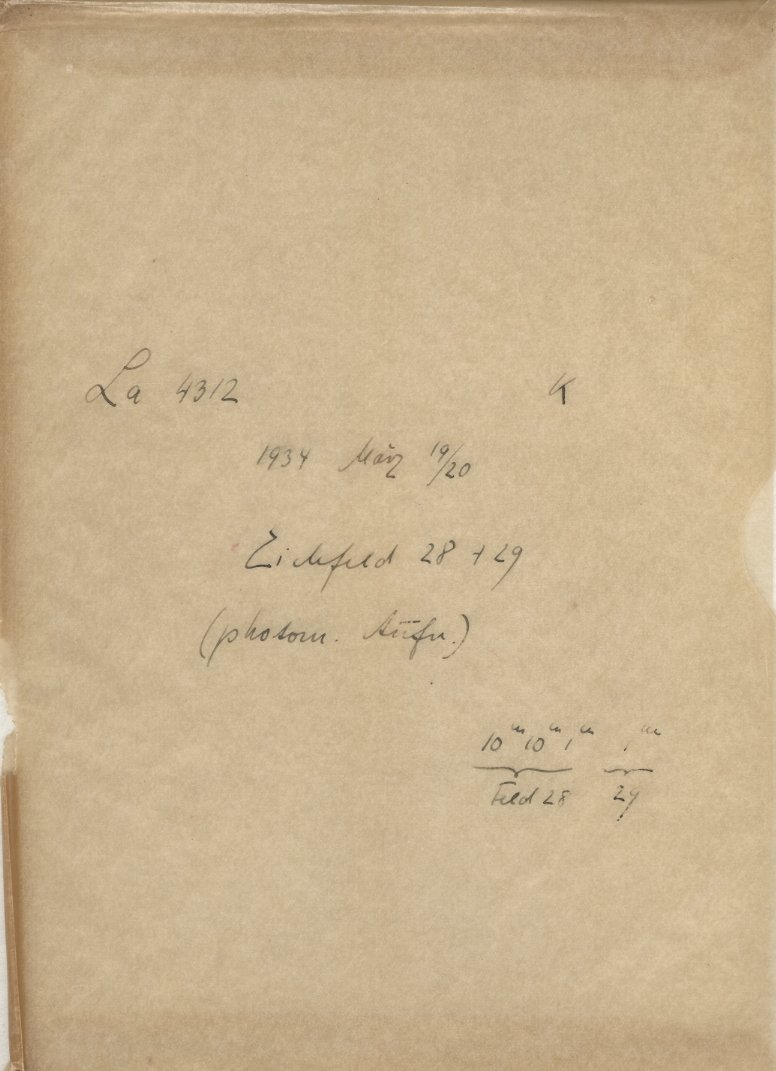 La 4312 K
1934 März 19/20
Eichfeld 28 + 29
(photom. Aufn.)
10ᵐ 10ᵐ 1ᵐ 1ᵐ
Feld 28 29